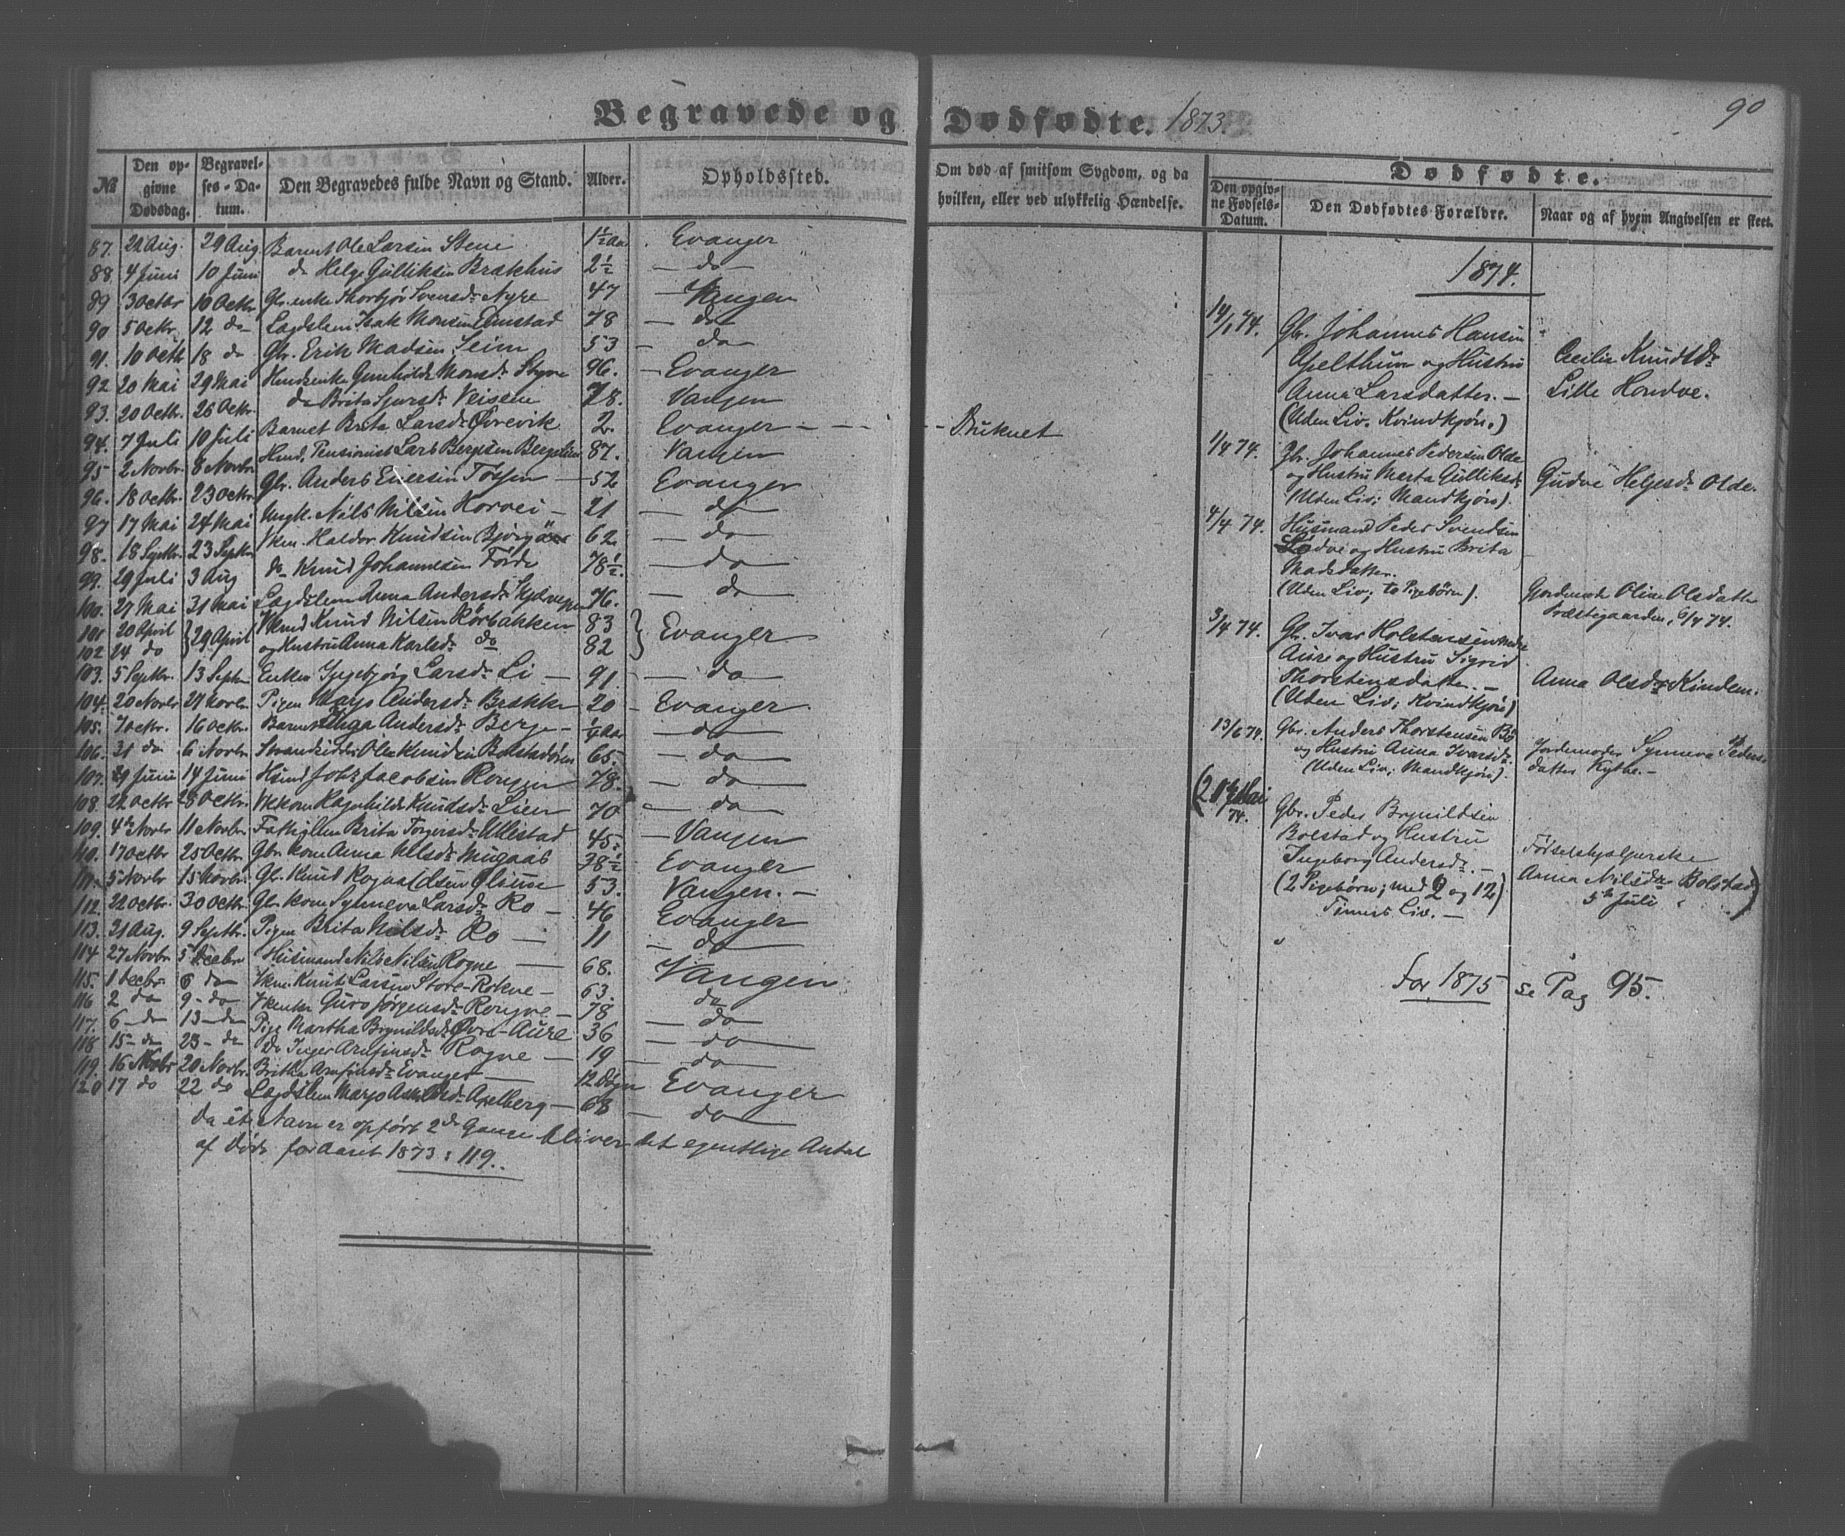 Begravede og Dødfødte. 1873.
90
№ Den opgivne Dødsdag. Begravelses-Datum. Den Begravedes fulde Navn og Stand. Alder. Opholdssted.
87. 22 Aug. 29 Aug Barnet Ole Larsen Stene 1½ Aar Evanger
88. 4 Juni 10 Juni do Helge Gulliksen Brækhus 2½ — do —
89 3 Octbr 10 Octbr. Gbr. enke Thorbjør Svensdr Nyre 47 — Vangen
90 5 Octbr. 12 do Lægdslem Isak Monsen Emstad 78 — do
91. 10 Octb. 18 do Gbr. Erik Madsen Seim 53 — do
92 20 Mai 29 Mai Gunhilde Monsdr Styve 96. — Evanger
93. 20 Octbr. 26 Octbr. do Brita Sjursdr Veisene 78. Vangen
94. 7 Juli 10 Juli Barnet Brita Larsdr Øvrevik 2. Evanger — — —
95 2 Novbr. 8 Novbr. Husmd. Pensionist Lars Bergesen 87. Vangen
96. 18 Octbr. 23 Octbr. Gbr. Anders Eiersen Tøssen — 52 Evanger
97 17 Mai 24 Mai Ungk. Nils Nilsen Horvei — 21 — do —
98. 18 Septbr. 23 Septbr Vkm. Haldor Knudsen Bjørgo 62 — do
99. 29 Juli 3 Aug do Knud Johannesen Førde 78½. — do
100. 27 Mai 31 Mai Lægdslem Anna Andersdr 76. — do
101 20 April } 29 April Vkmd Knud Nilsen Rørbakken 83 } Evanger
102 24 do og Hustru Anna Karlsdr do 82
103. 5 Septbr. 13 Septbr Enken Ingebjørg Larsdr Li — 91 — do —
104. 20 Novbr 27 Novbr. Pigen Marjo Andersdr Brække 20 — Evanger
105. 7 Octbr. 16 Octbr. Barnet Inga Andersdr Berge — ¼ Aar — do
106. 31 do 6 Novbr. Strandsidder Ole Knudsen Bolstadøren 65. — do
107. 29 Juni 14 Juni Husmd Johs Jacobsen Rongen 78. — do
108. 22 Octbr 28 Octbr. Vkkone Ragnhilde Knudsdr Lien 70 — do
109. 4de Novbr 11 Novbr. Fattiglem Brita Torgersdr Ullestad 45. — Vangen
110. 17 Octbr 25 Octbr. Gbr kone Anna Nilsdr Mugaas 38½ Evanger
111. 5 Novbr 15 Novbr. Gbr. Knud Rognaldsen 53. Vangen. —
112. 22 Octbr. 30 Octbr. Gbr kone Synneva Larsdr Ro — 46 Evanger
113. 31 Aug. 9 Septbr. Pigen Brita Nilsdr Ro — 11 — do
114 27 Novbr. 5 Decbr Husmand Nils Nilsen Rogne — 68. Vangen
115. 1 Decbr. 6 do Vkmd Knut Larsen Store-Rokne — 63. do
116 2 do 9 — do Vkenke Guro Jørgensdr Rongve — 78 — do
117. 6 — do 13 — do Pige Martha Brynildsdr Øvre-Aure 36 — do
118 15 — do 23 — do Do Inger Arnfinsdr Rogne — 19 — do
119. 16 Novbr 20 Novbr. Britha Arnfinsdr Evanger — 12 Døgn Evanger
120 17 do 22 do Lægdslem Marjo Apelberg — 68 — do
Da ét Navn er opført 2de Gange bliver det egentlige Antal
af Døde for Aaret 1873: 119.
Om død af smitsom Sygdom, og da hvilken, eller ved ulykkelig Hændelse.
Druknet
Dødfødte.
Den opgivne Fødsels-Datum. Den Dødfødtes Forældre. Naar og af hvem Angivelsen er skeet.
1874.
14/1 74. Gbr. Johannes Hansen
Apelthun og Hustru
Anna Larsdatter. —
(Uden Liv. Kvindkjøn.)
Cecilie Knudsdr
Lille Hondve.
1/4 74. Gbr. Johannes Pedersen Olde
og Hustru Marta Gulliksdr
(Uden Liv; Mandkjøn).
Gudve Helgesdr Olde.
4/4 74. Husmand Peder Svendsen
Lødve og Hustru Brita
Madsdatter.
(Uden Liv; to Pigebørn).
Jordemode Oline Olsdatter
Præstegaarden, 6/4 74.
3/4 74. Gbr. Ivar Holstensen
Aure og Hustru Sigrid
Thorstensdatter. —
(Uden Liv; Kvindkjøn)
Anna Olsdr Kinden.
13/6 74. Gbr. Anders Thorstensen Bø
og Hustru Anna Ivarsdr
(Uden Liv; Mandkjøn)
Jordemoder Synneva Peders-
datter Kythe. —
Mai 74. Gbr. Peder Brynildsen
Bolstad og Hustru
Ingeborg Andersdr. —
(2 Pigebørn; med 2 og 12
Timers Liv. —
Fødselshjælperske
Anna Nilsdr Bolstad
5te Juli
For 1875 se Pag 95.